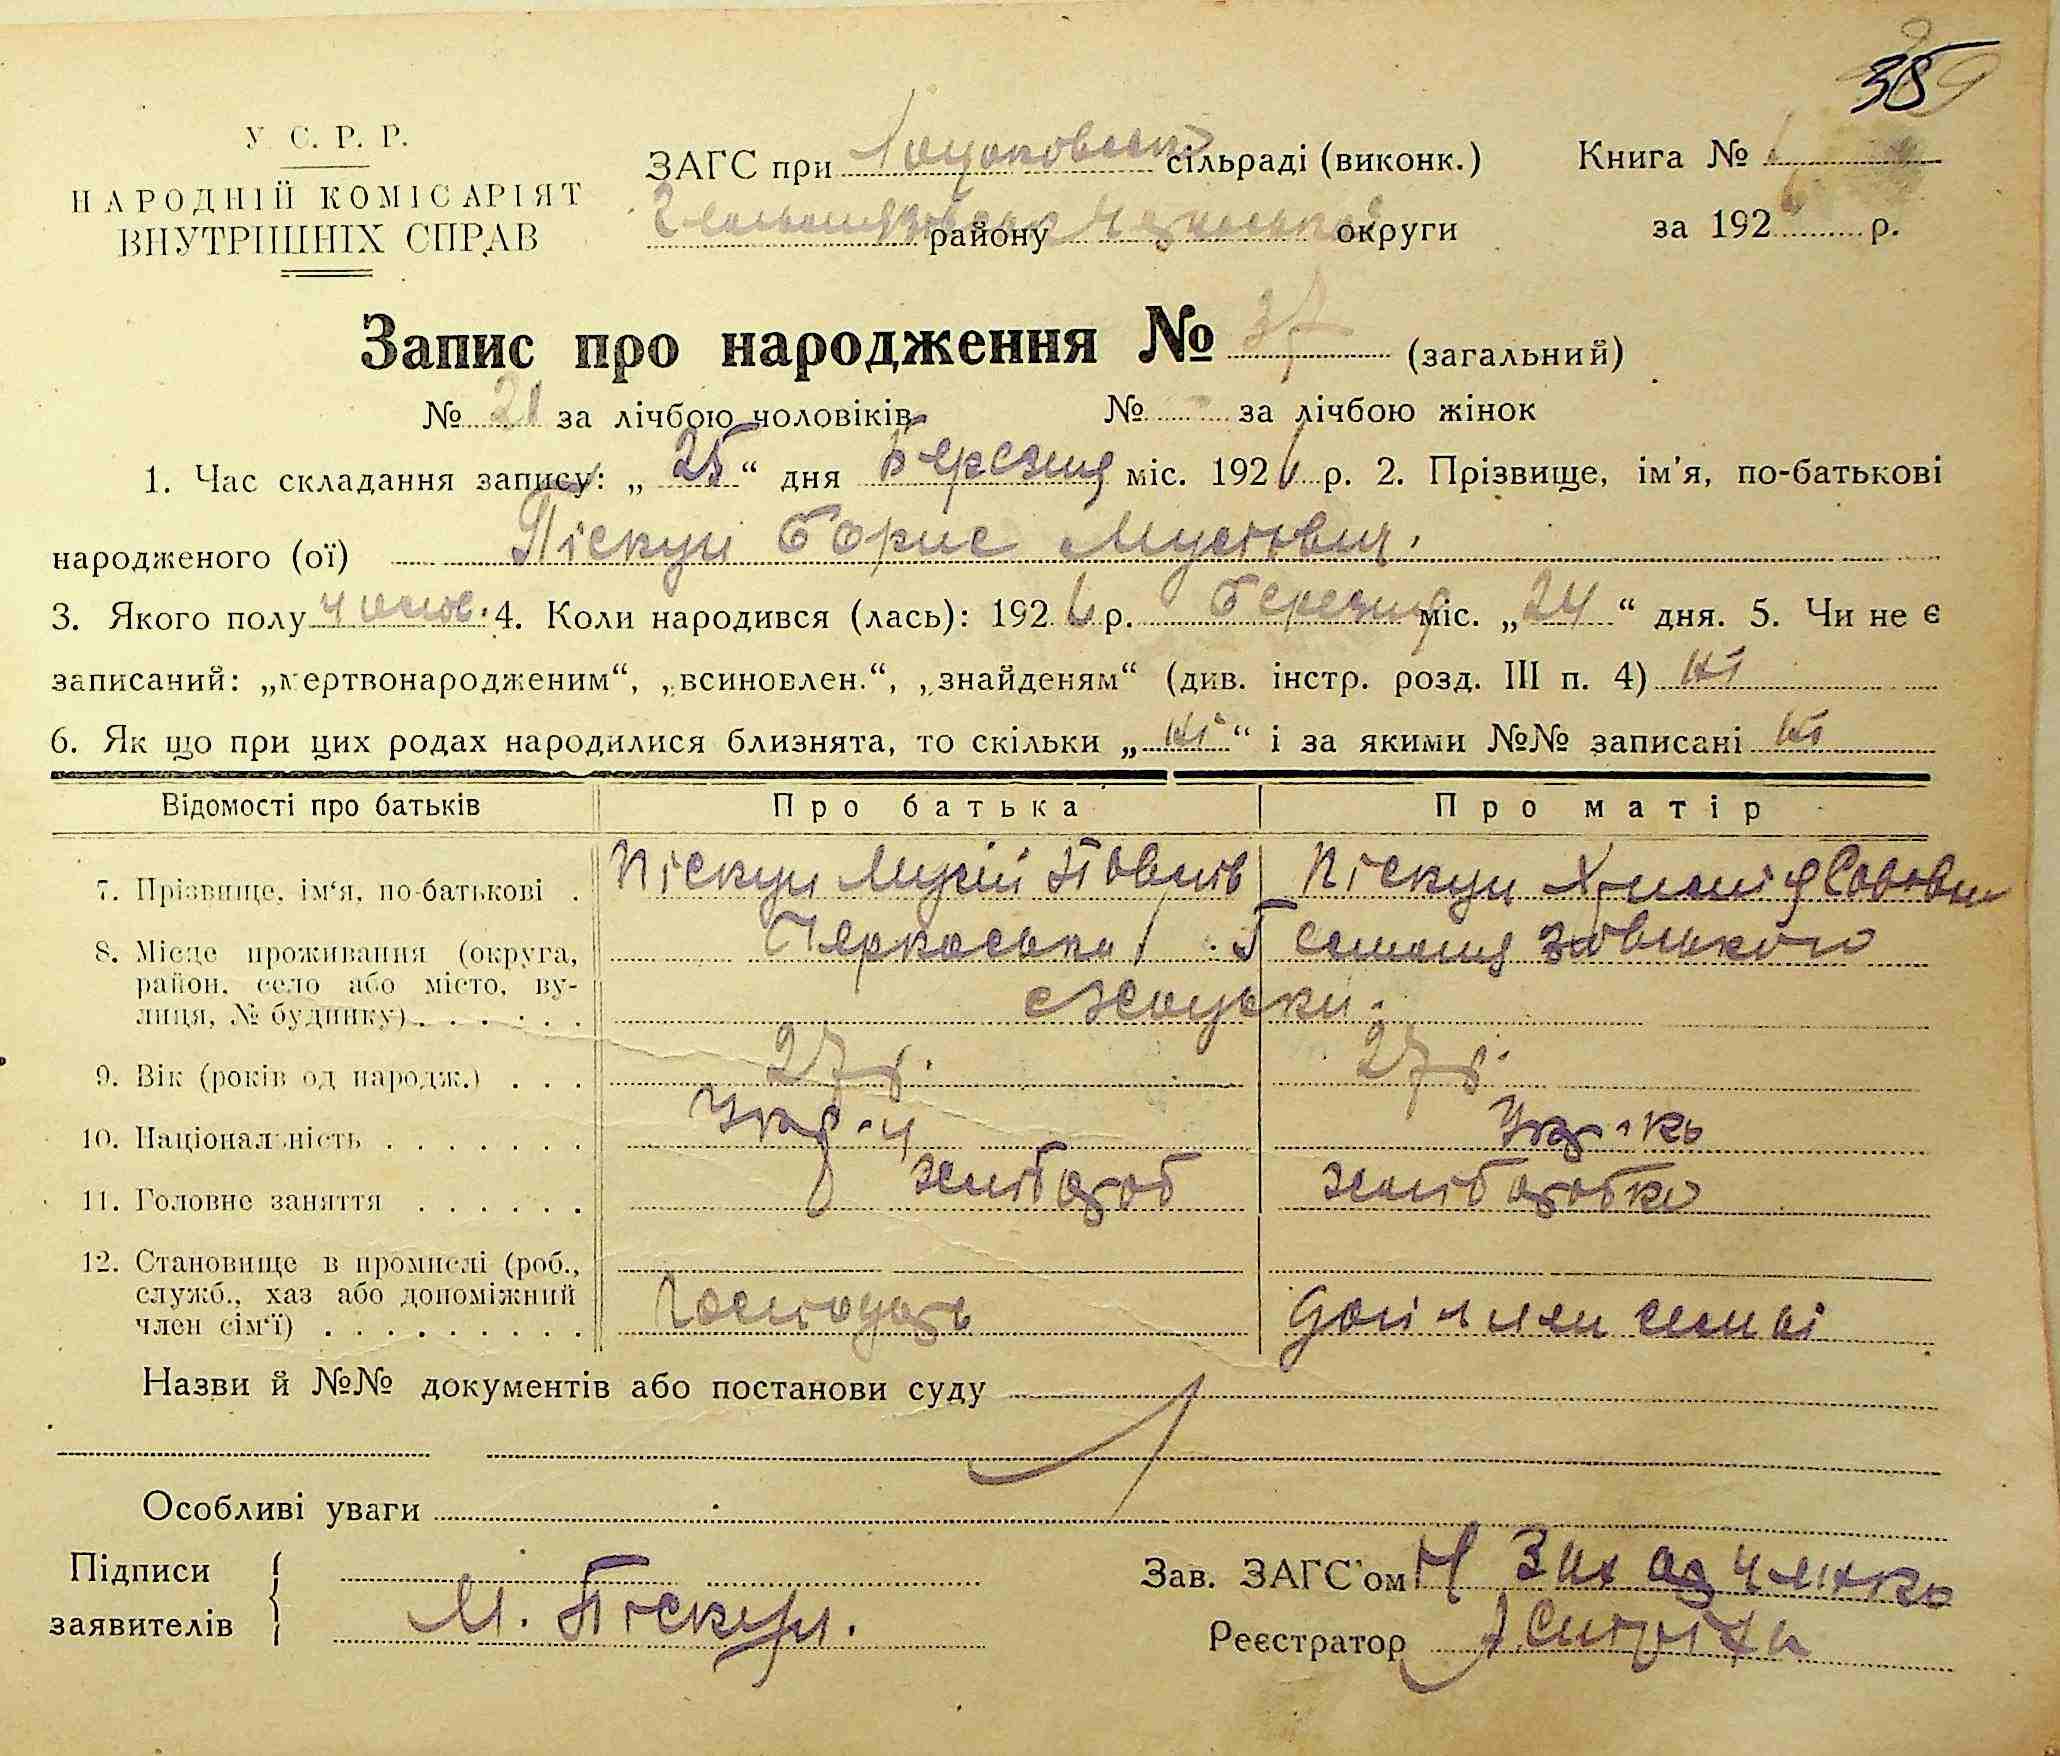 38
У. С. Р. Р.
НАРОДНІЙ КОМІСАРІЯТ
ВНУТРІШНІХ СПРАВ
ЗАГС при сільраді (виконк.)
району округи
Книга № 1
за 1926 р.
Запис про народження № 37 (загальний)
№ 21 за лічбою чоловіків № - за лічбою жінок
1. Час складання запису: „ 25 “ дня березня міс. 1926 р. 2. Прізвище, ім'я, по-батькові
народженого (ої) Піскун Борис Мусієвич.
3. Якого полу чолов. 4. Коли народився (лась): 1926 р. березня міс. „ 24 “ дня. 5. Чи не є
записаний: „мертвонародженим“, „всиновлен.“, „знайденям“ (див. інстр. розд. III п. 4) ні
6. Як що при цих родах народилися близнята, то скільки „ ні “ і за якими №№ записані ні
Відомості про батьків Про батька Про матір
7. Прізвище, ім'я, по-батькові . Піскун Мусій Павлів Піскун
8. Місце проживання (округа,
район, село або місто, ву-
лиця, № будинку) . . . . . .
Черкаська
9. Вік (років од народж.) . . . 27 р. 27 р.
10. Національність . . . . . . . Укр-ц Укр-ка
11. Головне заняття . . . . . . хлібороб хліборобка
12. Становище в промислі (роб.,
служб., хаз або допоміжний
член сім'ї) . . . . . . . . .
Господарь доп член семьі
Назви й №№ документів або постанови суду
Особливі уваги
Підписи
заявителів
М. Піскун.
Зав. ЗАГС'ом
Реєстратор